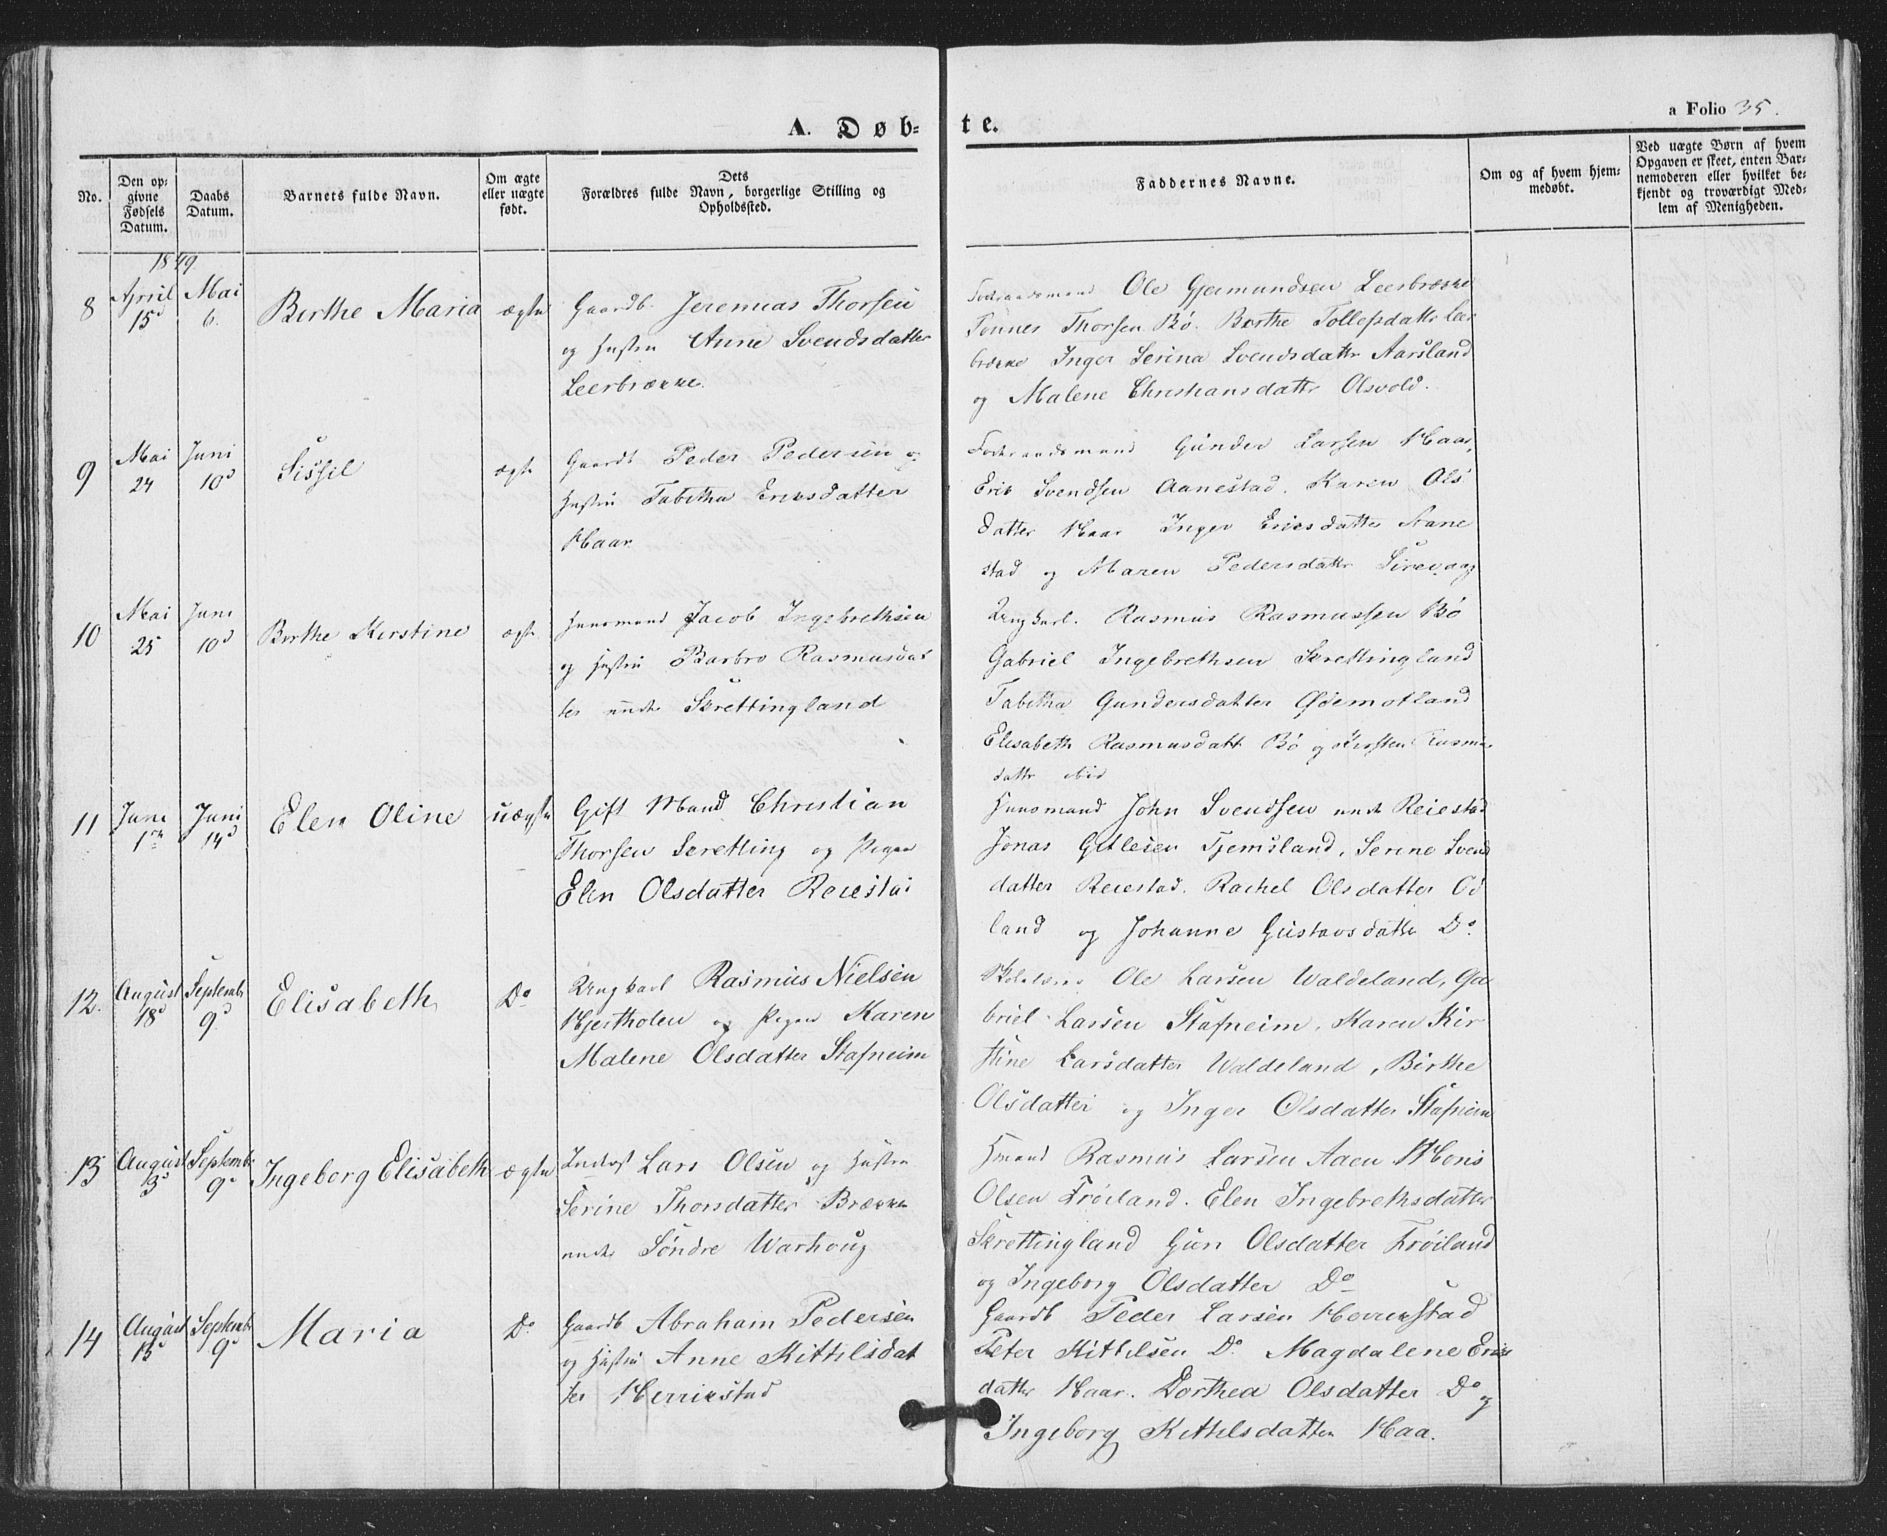 a Folio 35.
A. Døb-
te.
No.
Den op-
givne
Fødsels
Datum.
Daabs
Datum.
Barnets fulde Navn.
Om ægte
eller uægte
født.
Dets
Forældres fulde Navn, borgerlige Stilling og
Opholdssted.
Faddernes Navne.
Om og af hvem hjem-
medøbt.
Ved uægte Børn af hvem
Opgaven er skeet, enten Bar-
nemoderen eller hvilket be-
kjendt og troværdigt Med-
lem af Menigheden.
1849
8
April
15d
Mai
6.
Birthe Maria
ægte
Gaardb. Jeremias Thorsen
og Hustru Anne Svendsdatter
Leerbrække
Foderaadsmand Ole Gjermundsen Leerbrække
Tønnes Thorsen Bø. Berthe Tollefsdattr Leer
brække Inger Serina Svendsdattr Aarsland
og Malene Christiansdattr Olsvold.
9
Mai
24
Juni
10d
Sissil
ægte
Gaardb Peder Pedersen og
Hustru Tabitha Ericsdatter
Haar
Foderaadsmand Gunder Larsen Haar,
Erik Svendsen Aanestad. Karen Ols
datter Haar Inger Ericsdatter Aane
stad og Maren Pedersdattr Sirevaag
10
Mai
25
Juni
10d
Birthe Kirstine
ægte
Huusmand Jacob Ingebrethsen
og Hustru Barbro Rasmusdat
ter under Skrettingland
Ungkarl. Rasmus Rasmussen Bø
Gabriel Ingebrethsen Skrettingland
Tabitha Gundersdatter Ødemotland
Elisabeth Rasmusdatt Bø og Kirsten Rasmus
datter ibid
11
Juni
1ste
Juni
14d
Elen Oline
uægte
Gift Mand Christian
Thorsen Skretting og Pigen
Elen Olsdatter Reiestad
Huusmand John Svendsen under Reiestad
Jonas Gitlesen Tjemsland, Serine Svend
datter Reiestad. Rachel Olsdatter Od
land og Johanne Gustavsdatter Do.
12.
August
18d
Septembr
9d
Elisabeth
Do
Ungkarl Rasmus Nielsen
Hjertholen og Pigen Karen
Malene Olsdatter Stafneim
Skolelærer Ole Larsen Waldeland, Ga
briel Larsen Stafneim, Karen Kir
stine Larsdatter Waldeland, Birthe
Olsdatter og Inger Olsdatter Stafneim
13
August
3d
Septembr
9d
Ingeborg Elisabeth
ægte
Inderst Lars Olsen og Hustru
Serine Thorsdatter Brække
under Søndre Warhoug
Hmand Rasmus Larsen Aaen Mons
Olsen Frøiland. Elen Ingebrethsdatter
Skrettingland Guri Olsdatter Frøiland
og Ingeborg Olsdatter Do
14
August
15d
Septembr
9d
Maria
Do
Gaardb Abraham Pedersen
og Hustru Anne Kittilsdat
ter Herrikstad
Gaardb Peder Larsen Herrikstad
Peter Kittilsen Do. Magdalene Erics
datter Haar. Dorthea Olsdatter Do og
Ingeborg Kittilsdatter Haa.